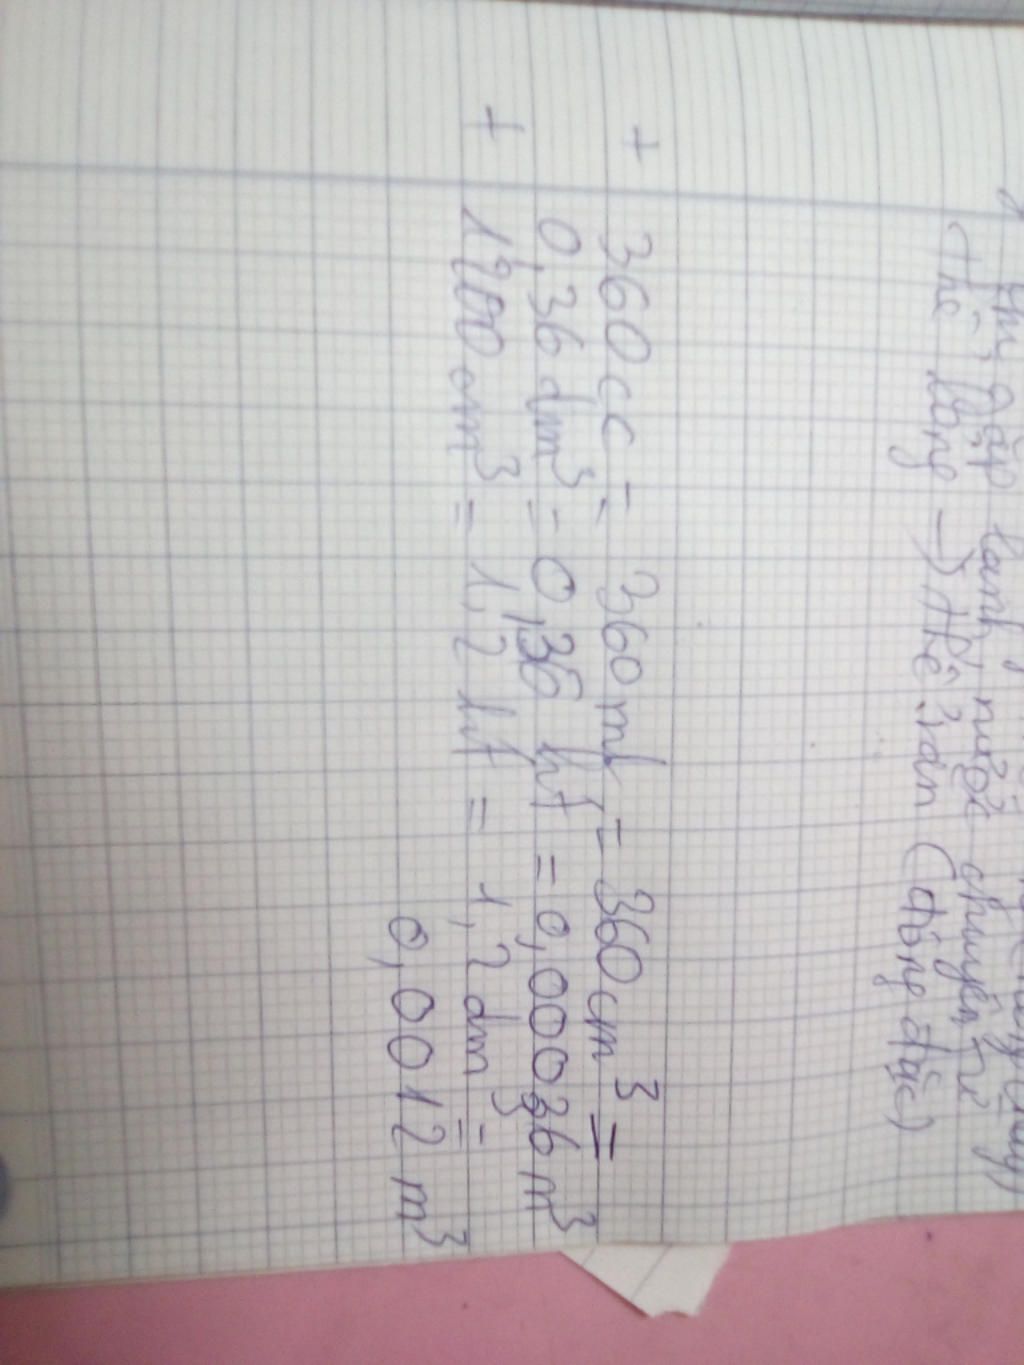 gặp lạnh, nước chuyển từ
thể lỏng → thể rắn (đông đặc)
+ 360 cc = 360 ml = 360 cm³ =
0,36 dm³ = 0,36 lít = 0,00036 m³
+ 1200 cm³ = 1,2 lít = 1,2 dm³ =
0,0012 m³